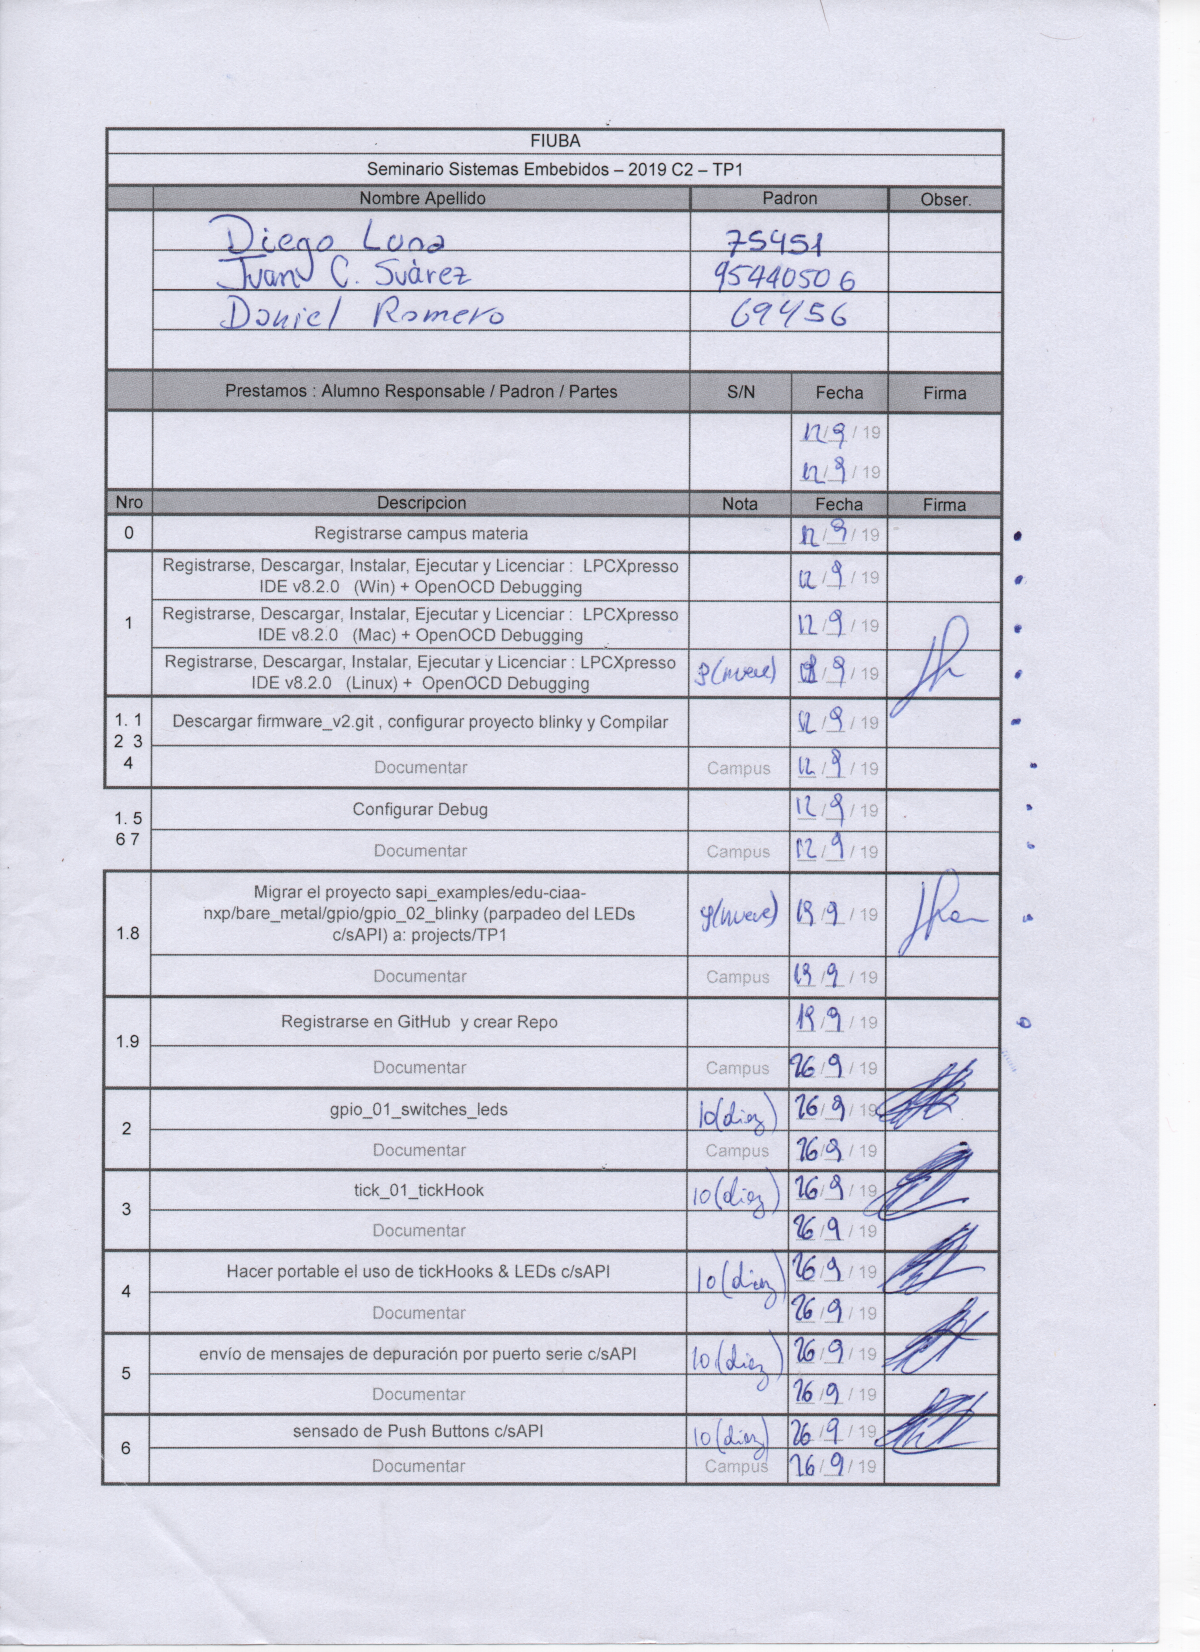 FIUBA
Seminario Sistemas Embebidos – 2019 C2 – TP1
Nombre Apellido Padron Obser.
Diego Luna 75451
Juan C. Suárez 95440506
Daniel Romero 69456
Prestamos : Alumno Responsable / Padron / Partes S/N Fecha Firma
12/9/19
12/9/19
Nro Descripcion Nota Fecha Firma
0 Registrarse campus materia 12/9/19
Registrarse, Descargar, Instalar, Ejecutar y Licenciar : LPCXpresso
IDE v8.2.0 (Win) + OpenOCD Debugging 12/9/19
1 Registrarse, Descargar, Instalar, Ejecutar y Licenciar : LPCXpresso
IDE v8.2.0 (Mac) + OpenOCD Debugging 12/9/19
Registrarse, Descargar, Instalar, Ejecutar y Licenciar : LPCXpresso
IDE v8.2.0 (Linux) + OpenOCD Debugging 9(nueve) /9/19
1. 1 Descargar firmware_v2.git , configurar proyecto blinky y Compilar 12/9/19
2 3
4 Documentar Campus 12/9/19
1. 5 Configurar Debug 12/9/19
6 7 Documentar Campus 12/9/19
Migrar el proyecto sapi_examples/edu-ciaa-
nxp/bare_metal/gpio/gpio_02_blinky (parpadeo del LEDs 9(nueve) 19/9/19
1.8 c/sAPI) a: projects/TP1
Documentar Campus 19/9/19
1.9 Registrarse en GitHub y crear Repo 19/9/19
Documentar Campus 26/9/19
2 gpio_01_switches_leds 10(diez) 26/9/19
Documentar Campus 26/9/19
3 tick_01_tickHook 10(diez) 26/9/19
Documentar 26/9/19
4 Hacer portable el uso de tickHooks & LEDs c/sAPI 10(diez) 26/9/19
Documentar 26/9/19
5 envío de mensajes de depuración por puerto serie c/sAPI 10(diez) 26/9/19
Documentar 26/9/19
6 sensado de Push Buttons c/sAPI 10(diez) 26/9/19
Documentar Campus 26/9/19